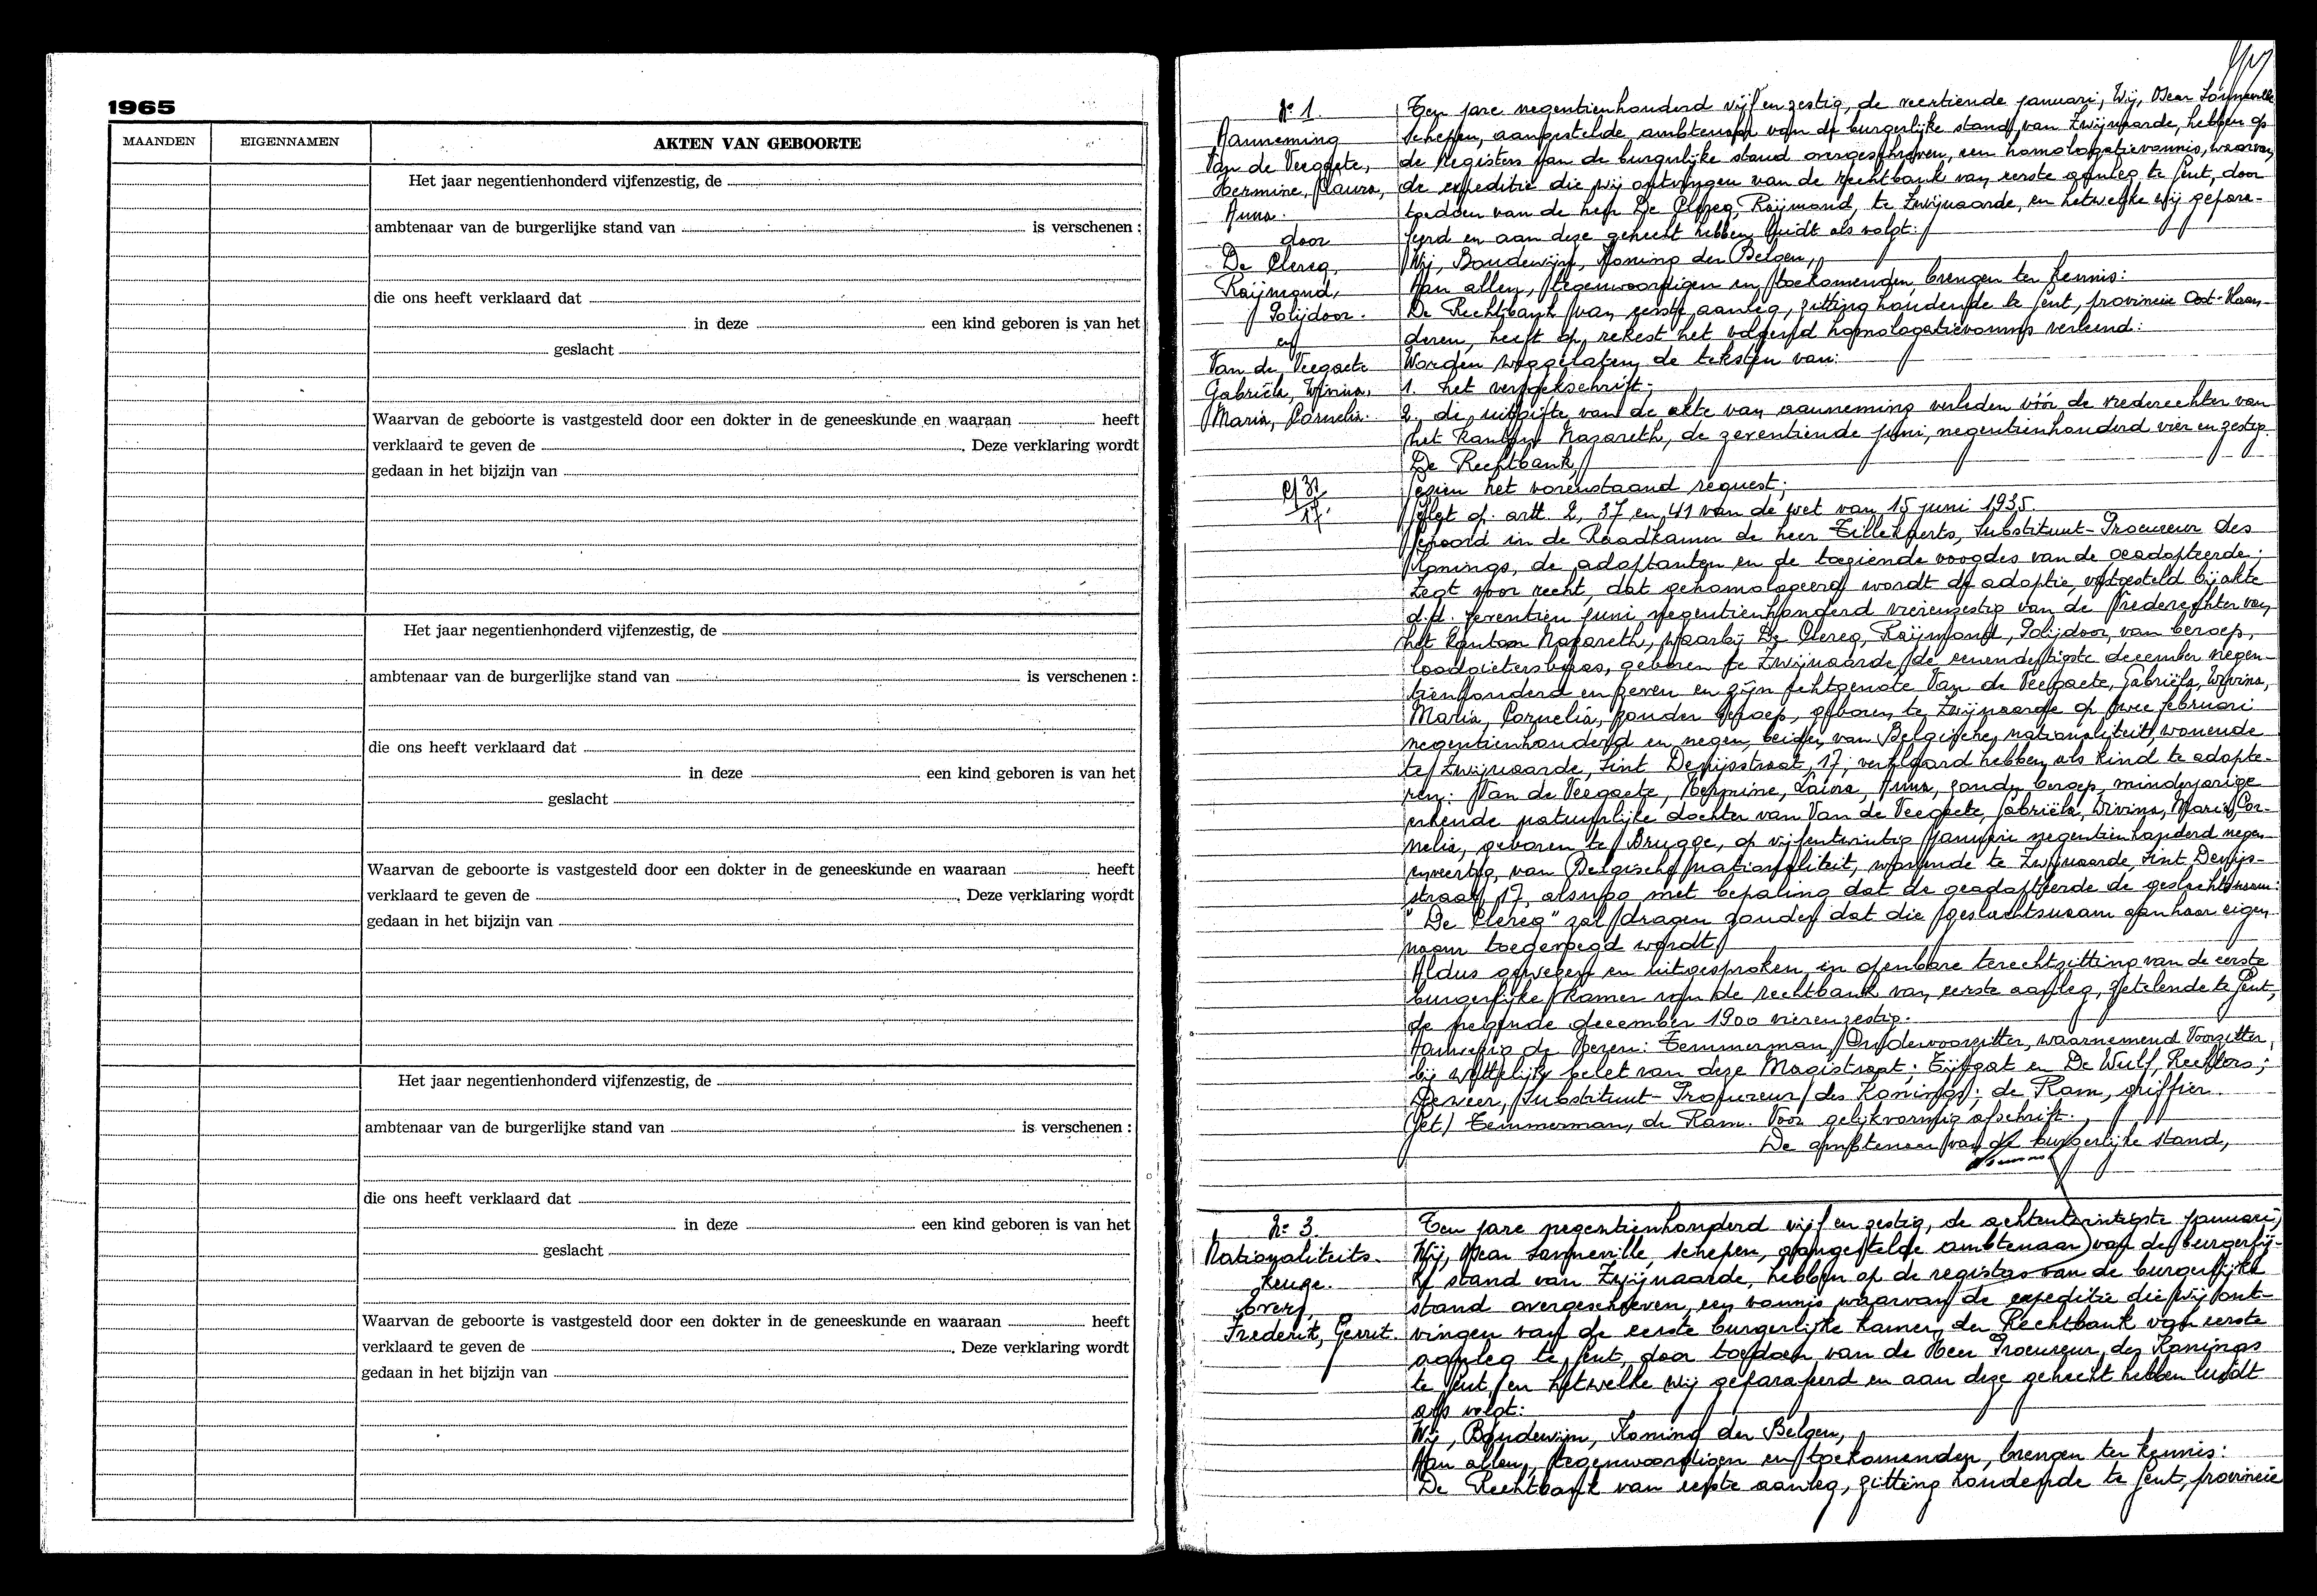 1965
MAANDEN EIGENNAMEN AKTEN VAN GEBOORTE
Het jaar negentienhonderd vijfenzestig, de
ambtenaar van de burgerlijke stand van is verschenen :
die ons heeft verklaard dat
in deze een kind geboren is van het
geslacht
Waarvan de geboorte is vastgesteld door een dokter in de geneeskunde en waaraan heeft
verklaard te geven de . Deze verklaring wordt
gedaan in het bijzijn van
Het jaar negentienhonderd vijfenzestig, de
ambtenaar van de burgerlijke stand van is verschenen :
die ons heeft verklaard dat
in deze een kind geboren is van het
geslacht
Waarvan de geboorte is vastgesteld door een dokter in de geneeskunde en waaraan heeft
verklaard te geven de . Deze verklaring wordt
gedaan in het bijzijn van
Het jaar negentienhonderd vijfenzestig, de
ambtenaar van de burgerlijke stand van is verschenen :
die ons heeft verklaard dat
in deze een kind geboren is van het
geslacht
Waarvan de geboorte is vastgesteld door een dokter in de geneeskunde en waaraan heeft
verklaard te geven de . Deze verklaring wordt
gedaan in het bijzijn van
Nr 1.
Aanneming
Van de Veegaete,
Hermine, Laura,
Anna.
door
De Clercq,
Raijmond,
Polijdoor.
en
Van de Veegaete
Gabriëla, Wivina,
Maria, Cornelia.
Ten jare negentienhonderd vijf en zestig, de veertiende januari, Wij, Oscar Sonneville
schepen, aangestelde ambtenaar van de burgerlijke stand van Zwijnaarde, hebben op
de registers van de burgerlijke stand overgeschreven, een homologatievonnis, waarvan
de expeditie die wij ontvingen van de rechtbank van eerste aanleg te Gent, door
toedoen van de heer De Clercq, Raijmond, te Zwijnaarde, en hetwelke wij gepara-
feerd en aan deze gehecht hebben, luidt als volgt:
Wij, Boudewijn, Koning der Belgen,
Aan allen, tegenwoordigen en toekomenden, brengen ter kennis:
De Rechtbank van eerste aanleg, zitting houdende te Gent, provincie Oost-Vlaan-
deren, heeft op rekest het volgend homologatievonnis verleend:
Worden weggelaten de teksten van:
1. het verzoekschrift;
2. de uitgifte van de akte van aanneming verleden vóór de vrederechter van
het kanton Nazareth, de zeventiende juni, negentienhonderd vier en zestig.
De Rechtbank,
Gezien het vorenstaand request;
Gelet op artt. 2, 37 en 41 van de wet van 15 juni 1935.
Gehoord in de Raadkamer de heer Tillekaerts, Substituut-Procureur des
Konings, de adoptanten en de toeziende voogdes van de geadopteerde;
Zegt voor recht, dat gehomologeerd wordt de adoptie, vastgesteld bij akte
d.d. zeventien juni negentienhonderd vierenzestig van de Vrederechter van
het kanton Nazareth, waarbij De Clercq, Raijmond, Polijdoor, van beroep,
loodgietersbaas, geboren te Zwijnaarde de eenendertigste december negen-
tienhonderd en zeven en zijn echtgenote Van de Veegaete, Gabriëla, Wivina,
Maria, Cornelia, zonder beroep, geboren te Zwijnaarde op twee februari
negentienhonderd en negen, beiden van Belgische nationaliteit, wonende
te Zwijnaarde, Sint Denijsstraat, 17, verklaard hebben als kind te adopte-
ren: Van de Veegaete, Hermine, Laura, Anna, zonder beroep, minderjarige
erkende natuurlijke dochter van Van de Veegaete, Gabriëla, Wivina, Maria, Cor-
nelia, geboren te Brugge, op vijfentwintig januari negentienhonderd negen
enveertig, van Belgische nationaliteit, wonende te Zwijnaarde, Sint Denijs-
straat, 17, alsmede met bepaling dat de geadopteerde de geslachtsnaam:
"De Clercq" zal dragen zonder dat die geslachtsnaam aan haar eigen
naam toegevoegd wordt.
Aldus gewezen en uitgesproken in openbare terechtzitting van de eerste
burgerlijke kamer van de rechtbank van eerste aanleg, zetelende te Gent,
de negende december 1900 vierenzestig.
Aanwezig de Heren: Temmerman, Ondervoorzitter, waarnemend Voorzitter,
bij wettelijk belet van deze Magistraat; Tijtgat en De Wulf, Rechters;
Derveer, Substituut-Procureur des Konings; de Ram, griffier.
(Get) Temmerman, de Ram. Voor gelijkvormig afschrift.
De ambtenaar van de burgerlijke stand,
Nr 3.
Nationaliteits-
keuze.
Frederik, Gerrit.
Ten jare negentienhonderd vijf en zestig, de achtentwintigste januari,
Wij, Oscar Sonneville, schepen, aangestelde ambtenaar van de burgerlij-
ke stand van Zwijnaarde, hebben op de registers van de burgerlijke
stand overgeschreven, een vonnis waarvan de expeditie die wij ont-
vingen van de eerste burgerlijke kamer der Rechtbank van eerste
aanleg te Gent, door toedoen van de Heer Procureur des Konings
te Gent, en hetwelke wij geparafeerd en aan deze gehecht hebben luidt
als volgt:
Wij, Boudewijn, Koning der Belgen,
Aan allen, tegenwoordigen en toekomenden, brengen ter kennis:
De Rechtbank van eerste aanleg, zitting houdende te Gent, provincie